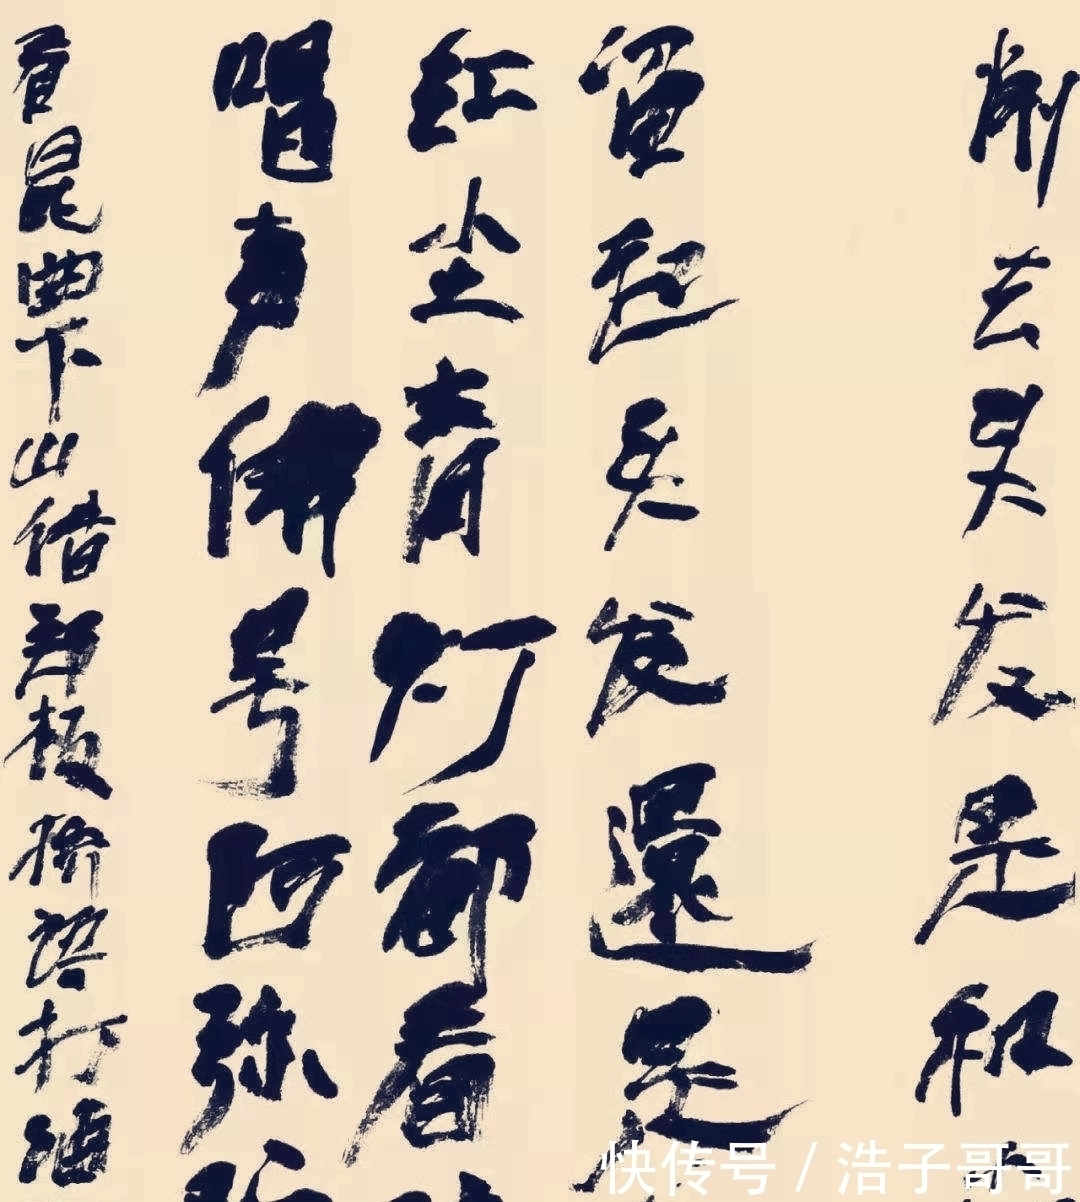 削去发是和
留起发還是
红尘青灯都看
唱声佛号阿弥
看昆曲下山借郑板桥语打酒
快传号 / 浩子哥哥